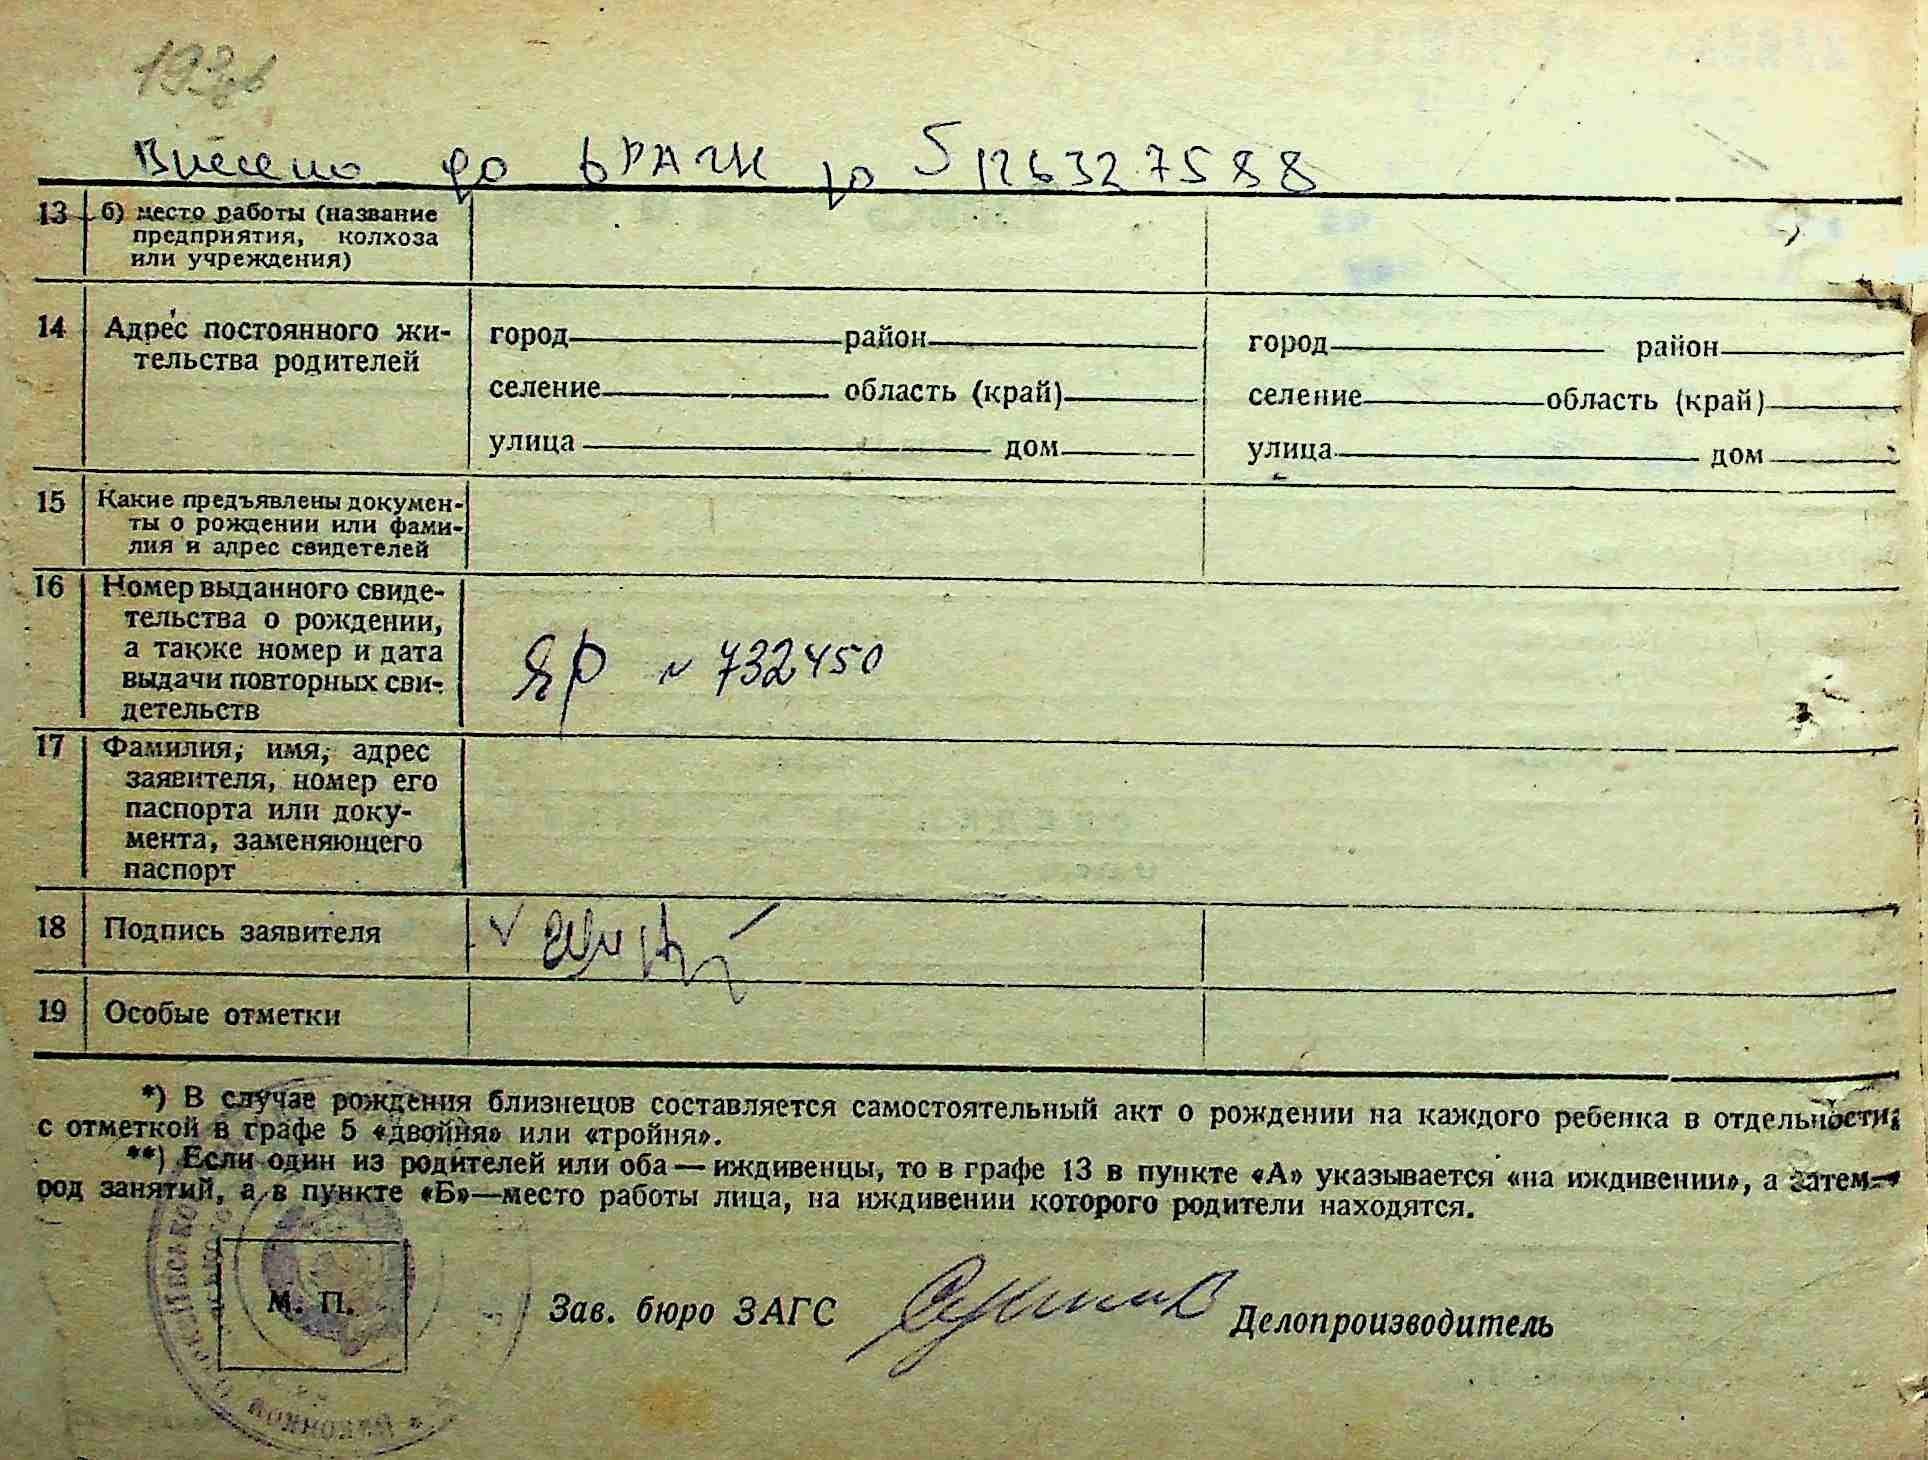 193
Внесено до ДРАЦС
13 б) место работы (название
предприятия, колхоза
или учреждения)
14 Адрес постоянного жи-
тельства родителей
город район город район
селение область (край) селение область (край)
улица дом улица дом
15 Какие предъявлены докумен-
ты о рождении или фами-
лия и адрес свидетелей
16 Номер выданного свиде-
тельства о рождении,
а также номер и дата
выдачи повторных сви-
детельств
ЯР № 732450
17 Фамилия, имя, адрес
заявителя, номер его
паспорта или доку-
мента, заменяющего
паспорт
18 Подпись заявителя
19 Особые отметки
*) В случае рождения близнецов составляется самостоятельный акт о рождении на каждого ребенка в отдельности
с отметкой в графе 5 «двойня» или «тройня».
**) Если один из родителей или оба — иждивенцы, то в графе 13 в пункте «А» указывается «на иждивении», а затем—
род занятий, а в пункте «Б»—место работы лица, на иждивении которого родители находятся.
М. П.
Зав. бюро ЗАГС Делопроизводитель